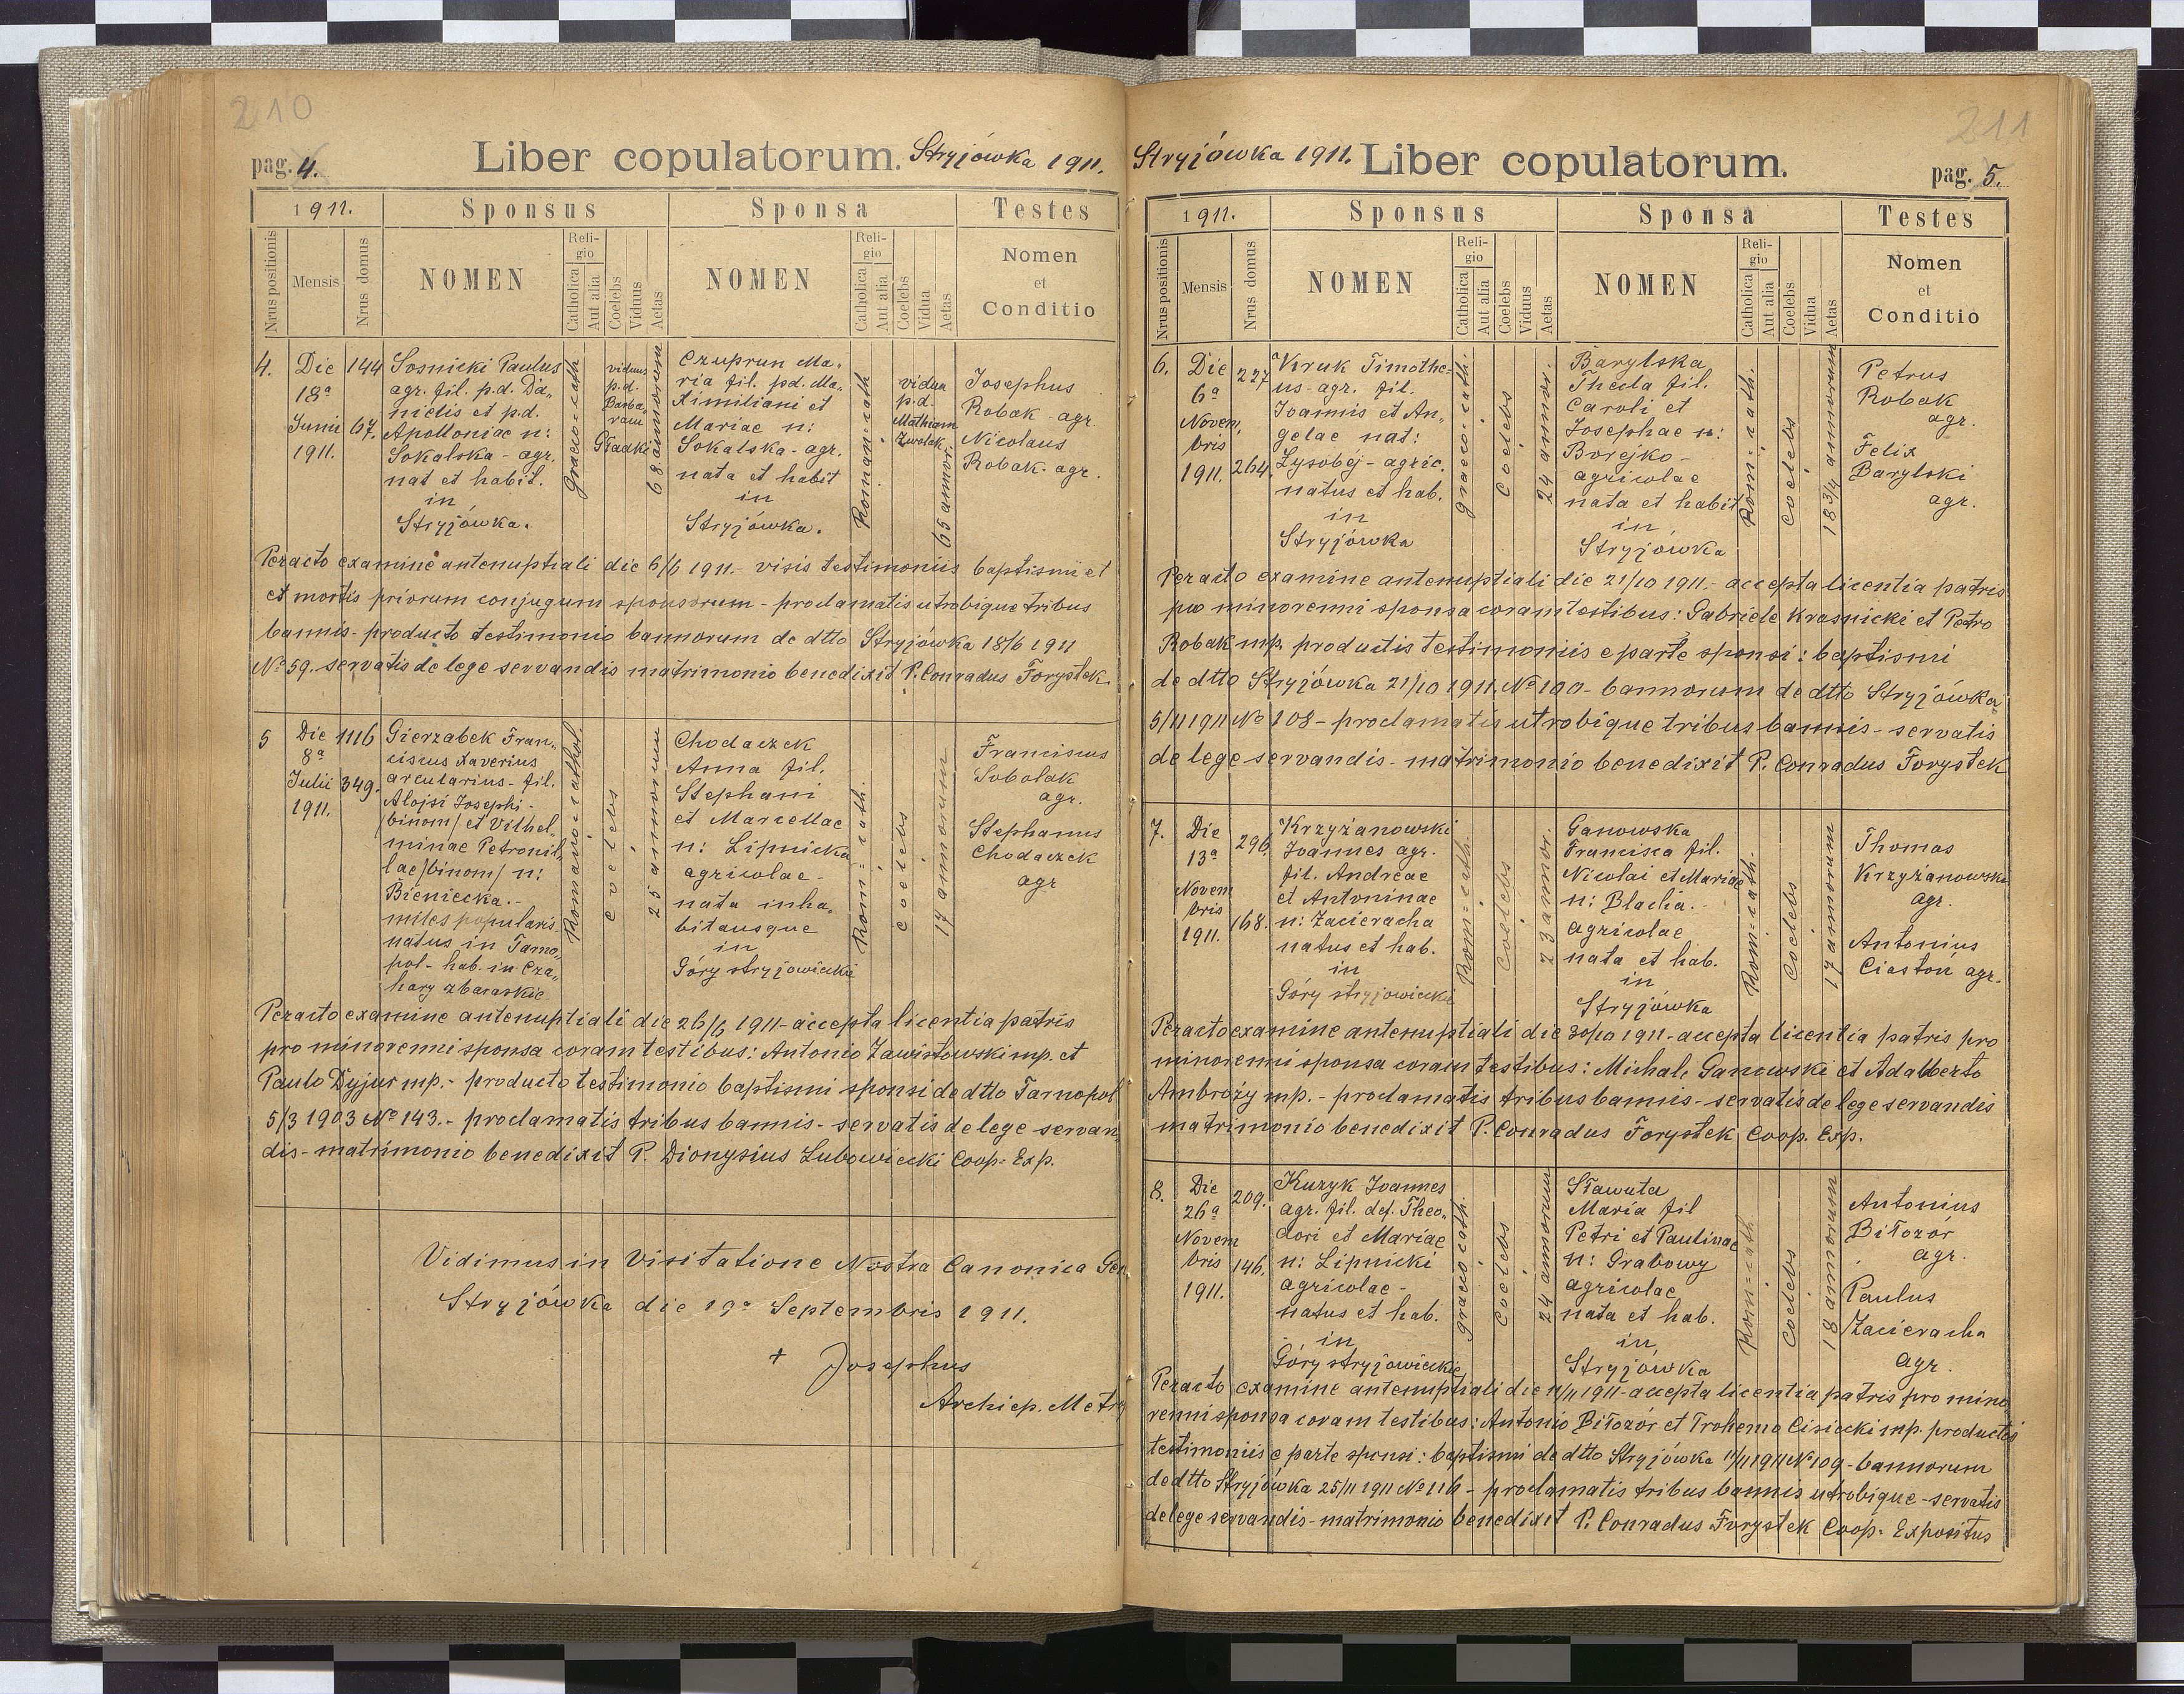 210
pag. 4.
Liber copulatorum. Stryjówka 1911.
1911.
Sponsus
Sponsa
Testes
Nrus positionis
Mensis
Nrus domus
NOMEN
Religio
Catholica
Aut alia
Coelebs
Viduus
Aetas
NOMEN
Religio
Catholica
Aut alia
Coelebs
Vidua
Aetas
Nomen
et
Conditio
4.
Die
18ª
Junii
1911.
144
67.
Sosnicki Paulus
agr. fil. p.d. Da„
nielis et p.d.
Apolloniae n:
Sokalska - agr.
nat et habit.
in
Stryjówka.
Graeco-cath
viduus
p.d.
Barba„
ram
Gładki
68 annorum
Czuprun Ma„
ria fil. pd. Ma„
ximiliani et
Mariae n:
Sokalska - agr.
nata et habit
in
Stryjówka.
Roman=cath
vidua
p.d.
Mathiam
Zwolak.
65 annor.
Josephus
Robak - agr.
Nicolaus
Robak - agr.
Peracto examine antenuptiali die 6/6 1911.- visis testimoniis baptismi et
et mortis priorum conjugum sponsorum - proclamatis utrobique tribus
bannis - producto testimonio bannorum de dtto Stryjówka 18/6 1911
Nº 59. servatis de lege servandis matrimonio benedixit P. Conradus Forystek.
5
Die
8ª
Julii
1911.
1116
349.
Gierzabek Fran„
ciscus Xaverius
arcularius - fil.
Aloisi Josephi -
/binom/ et Vilhel„
minae Petronil„
lae /binom/ n:
Bieniecka.-
miles popularis
natus in Tarno„
pol - hab. in Cza„
hary zbaraskie
Romano=cathol.
coelebs
25 annorum
Chodaczek
Anna fil.
Stephani
et Marcellae
n: Lipnicka
agricolae -
nata inha„
bitansque
in
Góry stryjowieckie
Rom=cath.
coelebs
17 annorum
Franciscus
Sobolak
agr.
Stephanus
Chodaczek
agr
Peracto examine antenuptiali die 26/6 1911 - accepta licentia patris
pro minorenni sponsa coram testibus: Antonio Zawistowski mp. et
Paulo Dyjur mp. - producto testimonio baptismi sponsi de dtto Tarnopol
5/3 1903 Nº 143. - proclamatis tribus bannis - servatis de lege servan„
dis - matrimonio benedixit P. Dionysius Lubowiecki Coop. Exp.
Vidimus in visitatione Nostra Canonica
Stryjówka die 19ª Septembris 1911.
+ Josephus
Archiep. Metr
211
Stryjówka 1911. Liber copulatorum.
pag. 5.
1911.
Sponsus
Sponsa
Testes
Nrus positionis
Mensis
Nrus domus
NOMEN
Religio
Catholica
Aut alia
Coelebs
Viduus
Aetas
NOMEN
Religio
Catholica
Aut alia
Coelebs
Vidua
Aetas
Nomen
et
Conditio
6.
Die
6ª
Novem„
bris
1911.
227
264.
Kruk Timothe=
us - agr. fil.
Joannis et An„
gelae nat:
Łysobej - agric.
natus et hab.
in
Stryjówka
graeco-cath.
coelebs
24 annor.
Barylska
Thecla fil.
Caroli et
Josephae n:
Borejko -
agricolae
nata et habit
in
Stryjówka
Rom=cath.
coelebs
18 3/4 annorum
Petrus
Robak
agr.
Felix
Barylski
agr.
Peracto examine antenuptiali die 21/10 1911.- accepta licentia patris
pro minorenni sponsa coram testibus: Gabriele Krasnicki et Petro
Robak mp. productis testimoniis e parte sponsi: baptismi
de dtto Stryjówka 21/10 1911 Nº 100 - bannorum de dtto Stryjówka
5/11 1911 Nº 108 - proclamatis utrobique tribus bannis - servatis
de lege servandis - matrimonio benedixit P. Conradus Forystek
7.
Die
13ª
Novem
bris
1911.
296
168.
Krzyżanowski
Joannes agr.
fil. Andreae
et Antoninae
n: Zacieracha
natus et hab.
in
Góry stryjowieckie
Rom=cath.
Coelebs
23 annor.
Ganowska
Francisca fil.
Nicolai et Mariae
n: Blacha.-
agricolae
nata et hab.
in
Stryjówka
Rom=cath-
Coelebs
17 annorum
Thomas
Krzyżanowski
agr.
Antonius
Ciastoń agr.
Peracto examine antenuptiali die 30/10 1911 - accepta licentia patris pro
minorenni sponsa coram testibus: Michale Ganowski et Adalberto
Ambroży mp. - proclamatis tribus bannis - servatis de lege servandis
matrimonio benedixit P. Conradus Forystek Coop. Exp.
8.
Die
26ª
Novem
bris
1911.
209.
146.
Kuzyk Joannes
agr. fil. def. Theo„
dori et Mariae
n: Lipnicki
agricolae -
natus et hab.
in
Góry stryjowieckie
graeco cath.
Coelebs
24 annorum
Sławuta
Maria fil
Petri et Paulinae
n: Grabowy
agricolae
nata et hab.
in
Stryjówka
Rom=cath
Coelebs
18 annorum
Antonius
Biłozór
agr.
Paulus
Zacieracha
agr.
Peracto examine antenuptiali die 11/11 1911 - accepta licentia patris pro mino
renni sponsa coram testibus: Antonio Biłozór et Trohemo Cisiecki mp. productis
testimoniis e parte sponsi: baptismi de dtto Stryjówka 11/11 1911 Nº 109 - bannorum
de dtto Stryjówka 25/11 1911 Nº 116 - proclamatis tribus bannis utrobique - servatis
de lege servandis - matrimonio benedixit P. Conradus Forystek Coop. Expositus